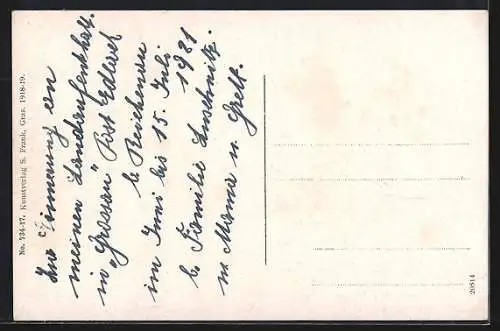 No. 734-17. Kunstverlag S. Frank, Graz. 1918-19.
Zur Erinnerung an
meinen Landaufenthalt
in "Grossau" Post Edlach
b. Reichenau
im Juni bis 15. Juli
1921
b. Familie
m. Mama u. Gretl.
20514